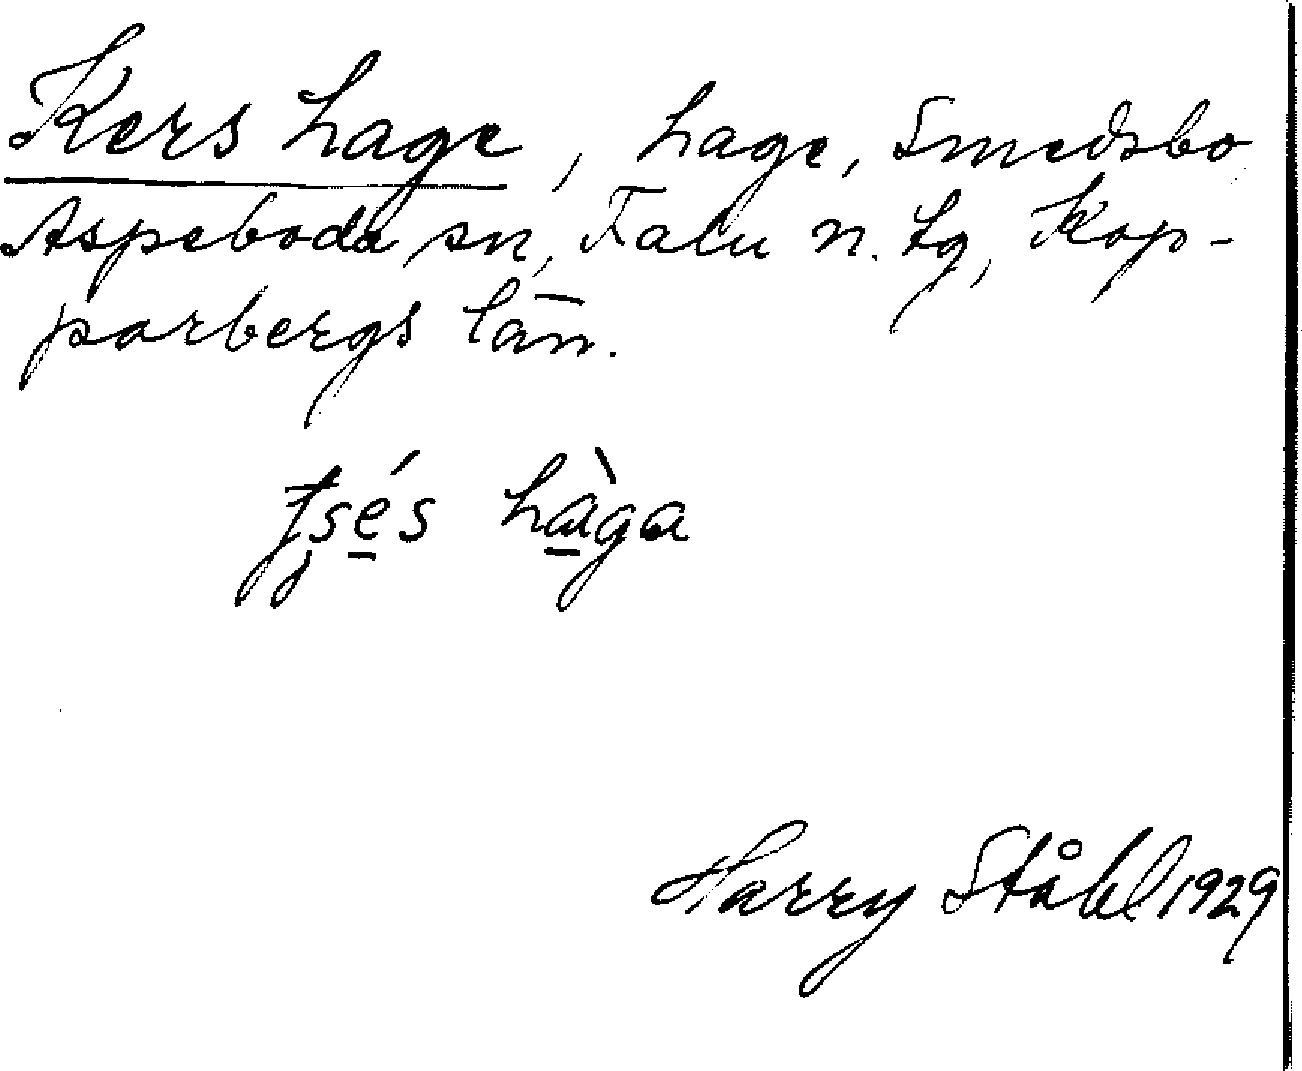 Kers hage, hage, Smedsbo
Aspeboda sn, Falu n. tg, Kop-
parbergs län.
tsés hàga
Harry Ståhl 1929